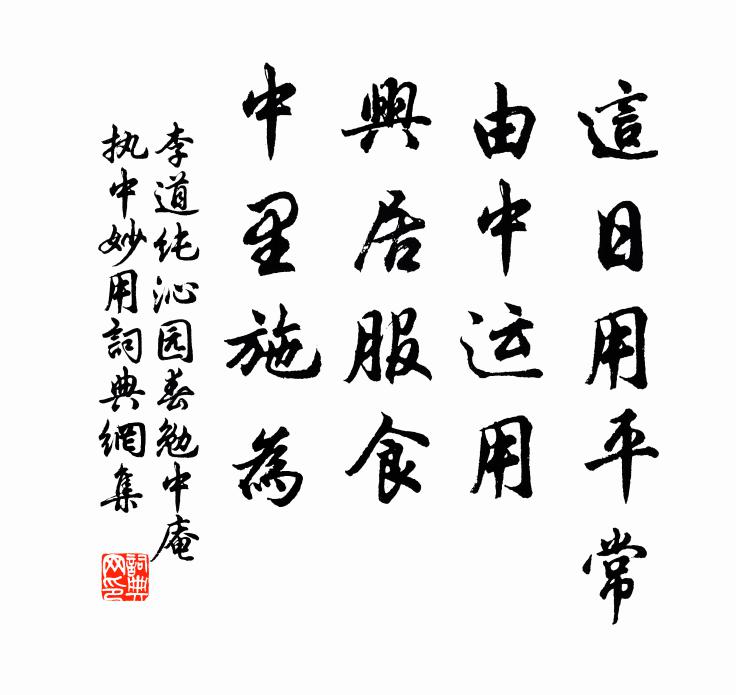 這日用平常
由中运用
興居服食
中里施為
李道纯沁园春勉中庵
执中妙用詞典網集
詞典
网印